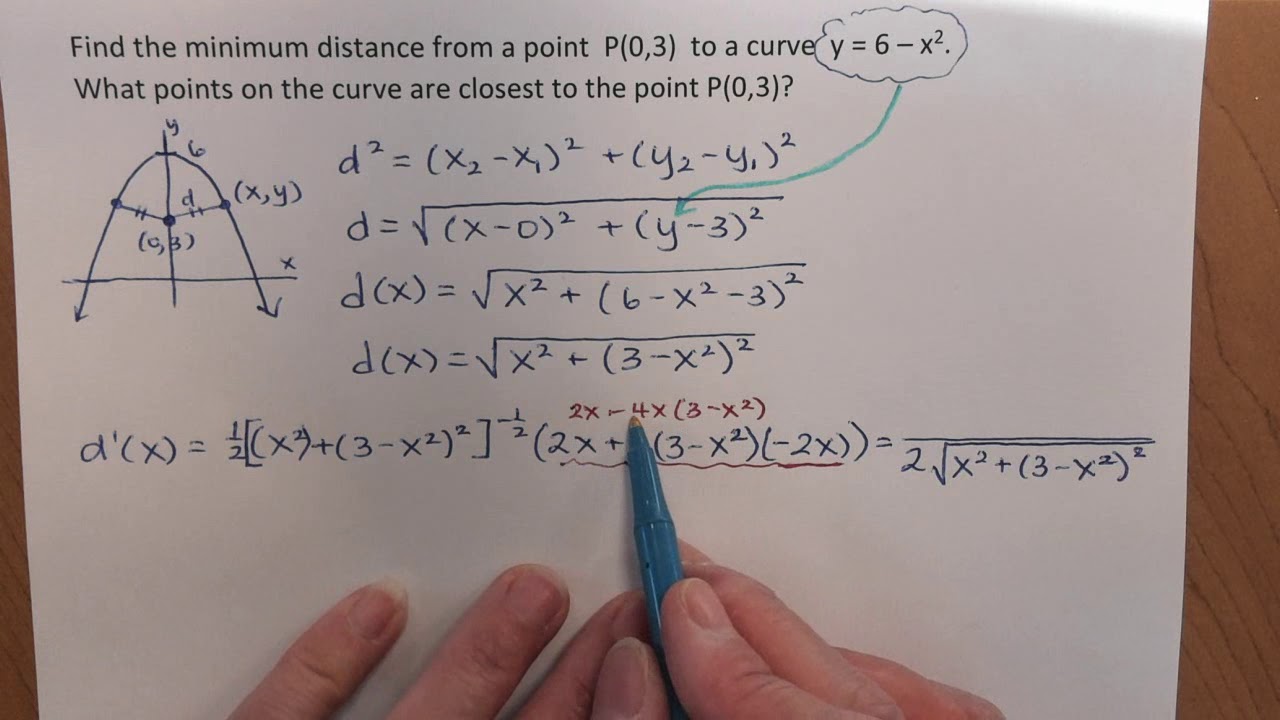 Find the minimum distance from a point P(0,3) to a curve y = 6 – x².
What points on the curve are closest to the point P(0,3)?
y
6
d
(x,y)
(0,3)
x
d² = (x₂-x₁)² + (y₂-y₁)²
d = √((x-0)² + (y-3)²)
d(x) = √(x² + (6-x²-3)²)
d(x) = √(x² + (3-x²)²)
2x - 4x(3-x²)
d'(x) = ½[(x²)+(3-x²)²]^-½ (2x + (3-x²)(-2x)) = 2√(x²+(3-x²)²)